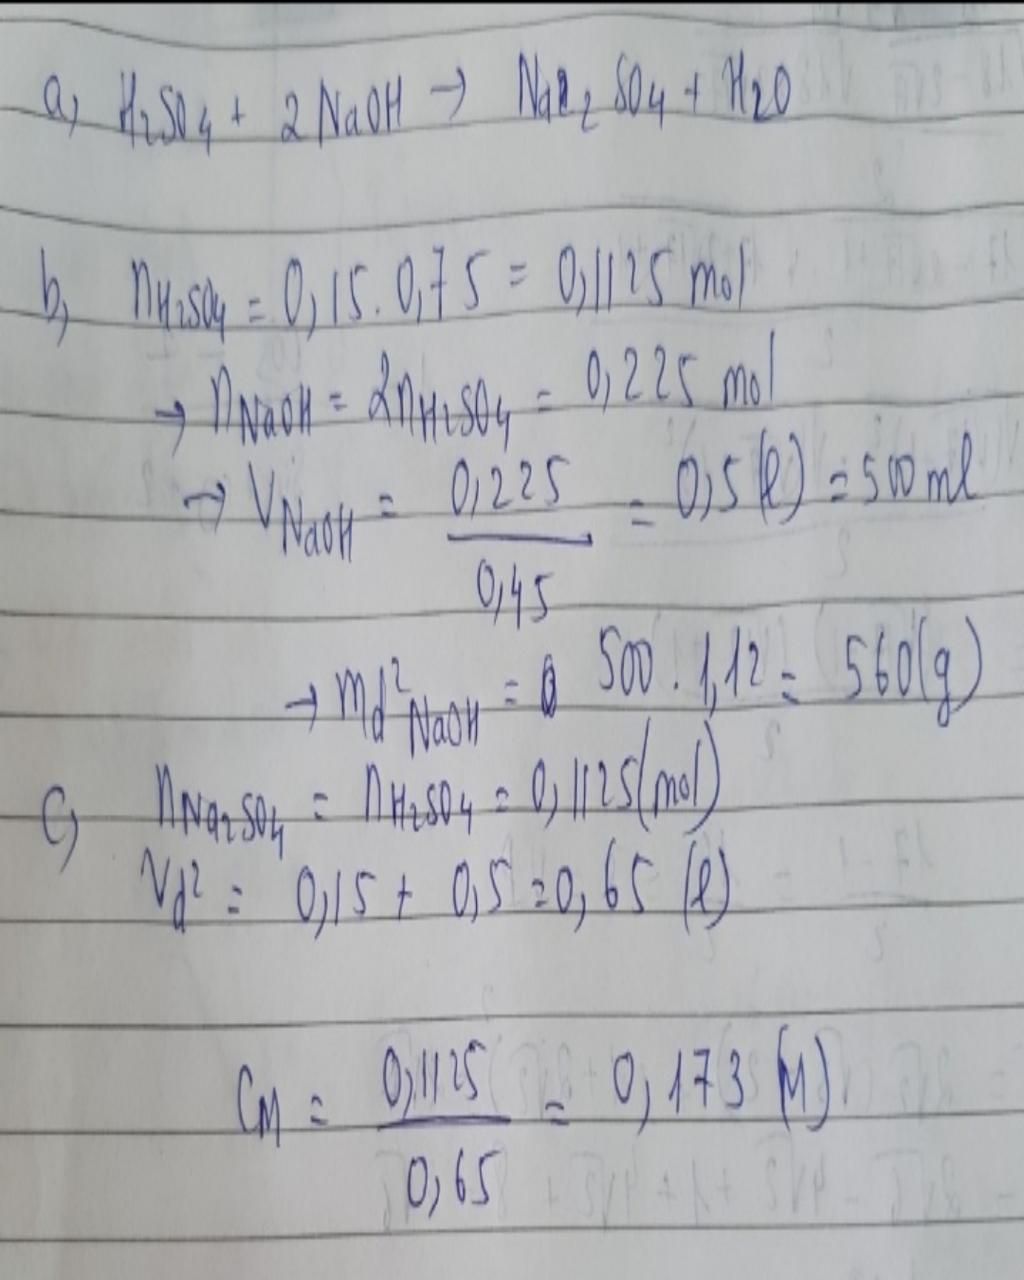 a, H₂SO₄ + 2NaOH → Na₂SO₄ + H₂O
b, nH₂SO₄ = 0,15.0,75 = 0,1125 mol
→ nNaOH = 2nH₂SO₄ = 0,225 mol
→ VNaOH = 0,225/0,45 = 0,5(l) = 500 ml
→ md² NaOH = 500.1,12 = 560(g)
c, nNa₂SO₄ = nH₂SO₄ = 0,1125(mol)
Vd² = 0,15 + 0,5 = 0,65 (l)
CM = 0,1125/0,65 = 0,173 (M)